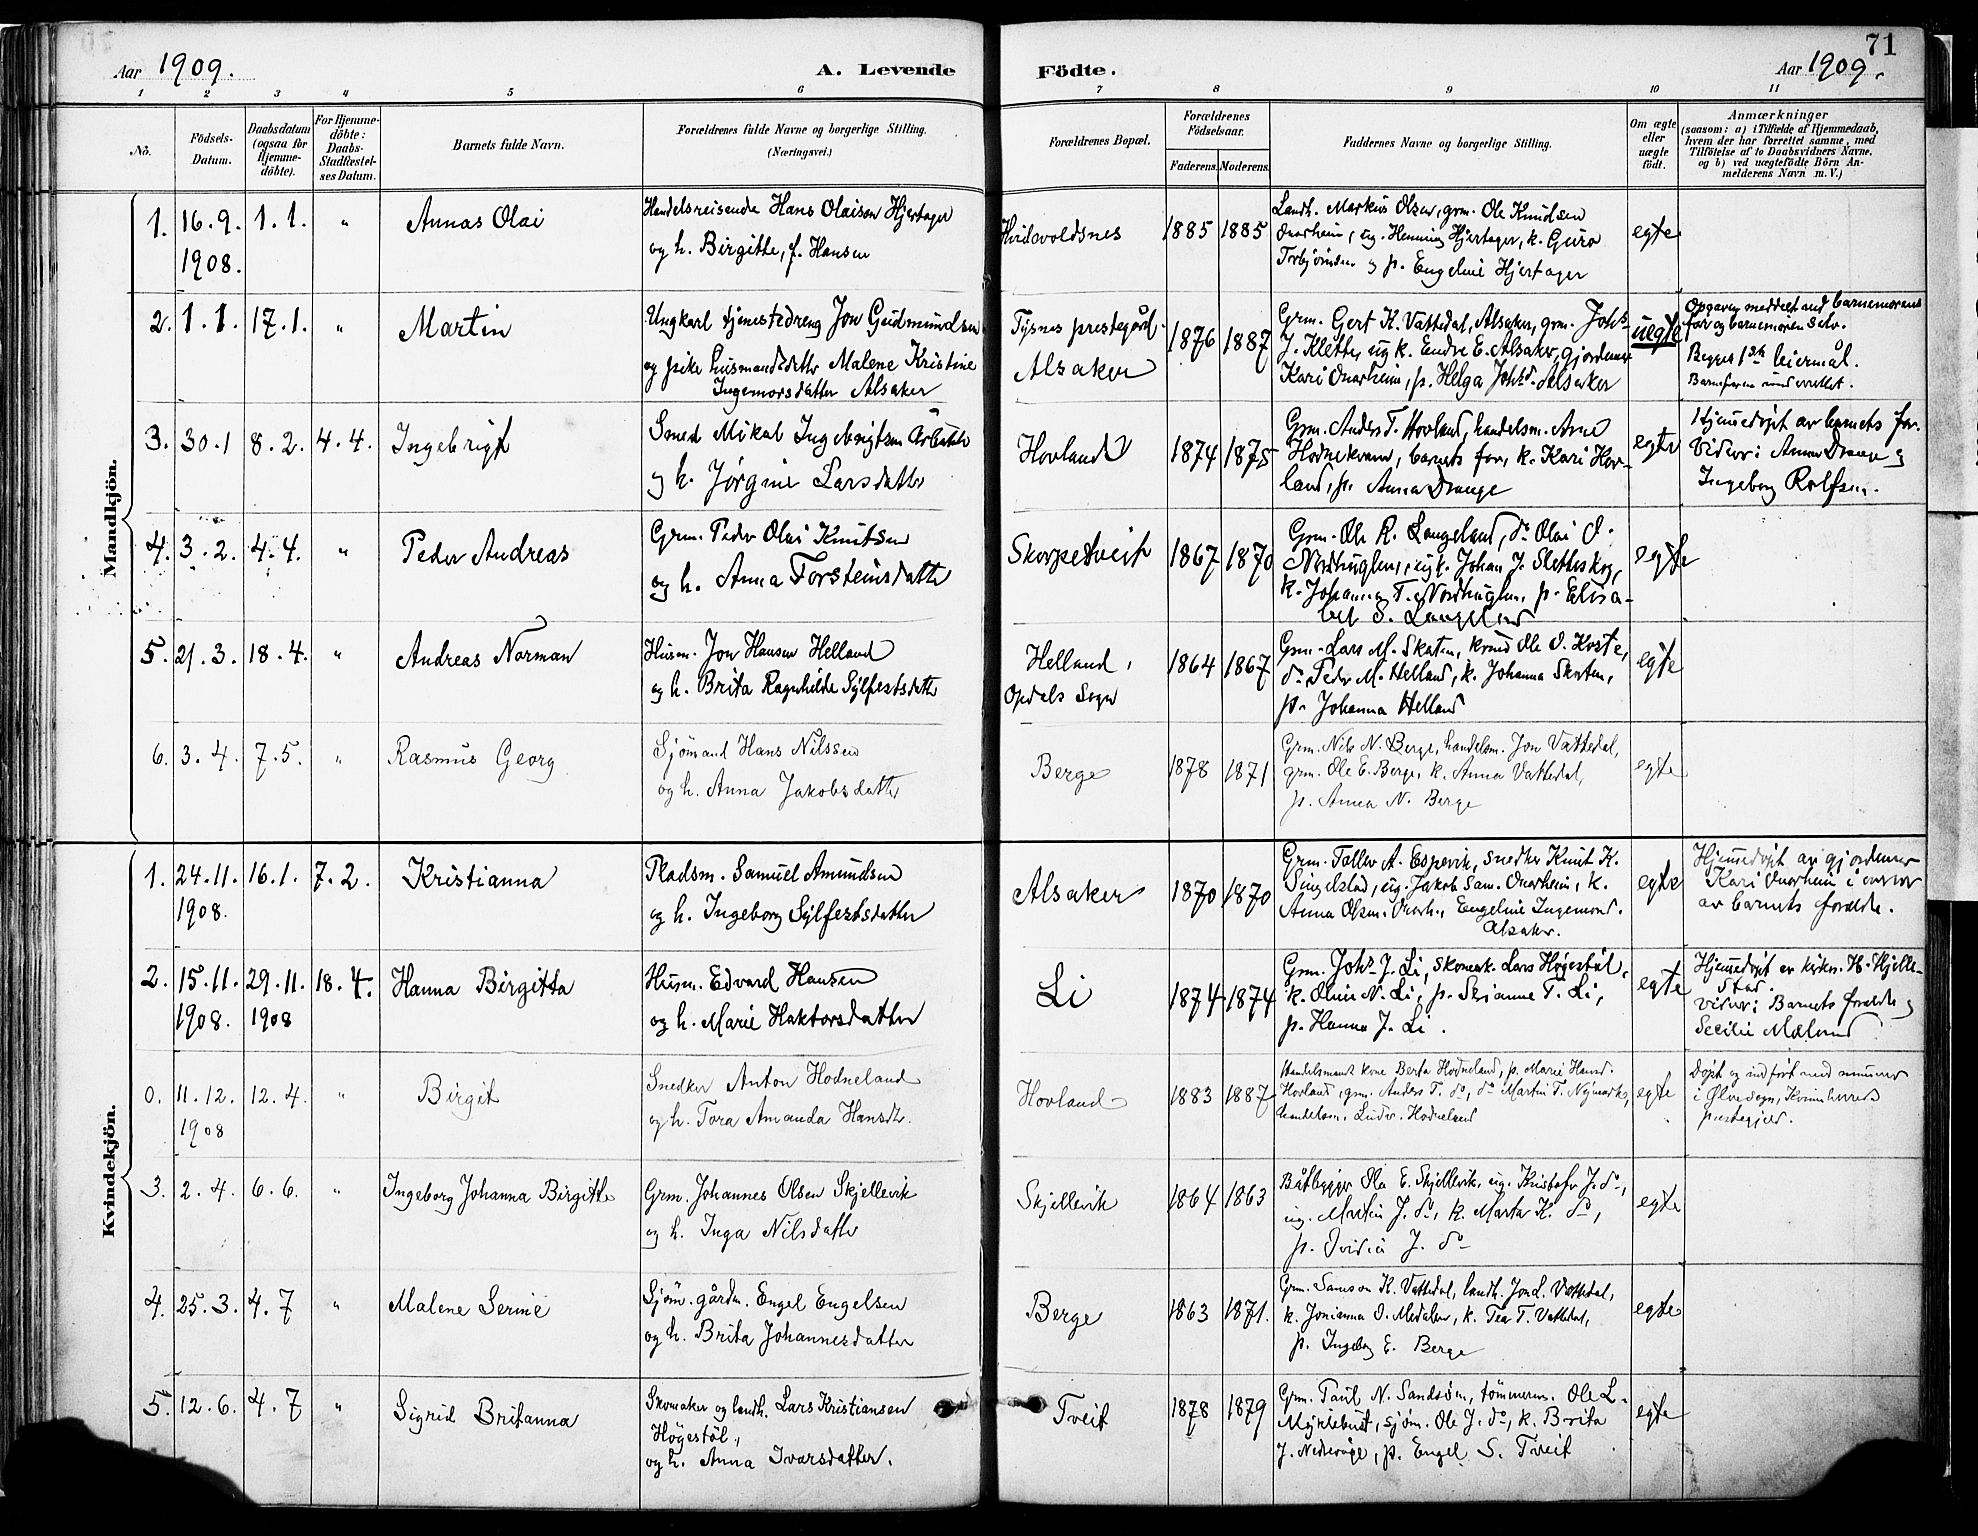 71
Aar 1909. A. Levende Födte. Aar 1909.
1 2 3 4 5 6 7 8 9 10 11
No.
Födsels-
Datum.
Daabsdatum
(ogsaa för
Hjemme-
döbte).
For Hjemme-
döbte:
Daabs-
Stadfæstel-
ses Datum.
Barnets fulde Navn.
Forældrenes fulde Navne og borgerlige Stilling.
(Næringsvei.)
Forældrenes Bopæl.
Forældrenes
Födselsaar.
Faderens. Moderens.
Faddernes Navne og borgerlige Stilling.
Om ægte
eller
uægte
födt.
Anmærkninger
(saasom: a) i Tilfælde af Hjemmedaab,
hvem der har forrettet samme, med
Tilföielse af to Daabsvidners Navne,
og b) ved uægtefödte Börn An-
melderens Navn m. V.)
Mandkjön.
1. 16.9. 1.1. " Annas Olai
1908.
Handelsreisende Hans Olaisen Hjertager
og h. Birgitte, f. Hansen
1885 1885
Landh. Markus Olsen, grm. Ole Knudsen
Onarheim, ug. Henning Hjertager, k. Guro
Torbjørnsen og p. Engeline Hjertager
egte
2. 1.1. 17.1. " Martin
Ungkarl tjenestedreng Jon Gudmundsen
og pike husmandsdatter Malene Kristine
Ingemorsdatter Alsaker
Tysnes prestegård
Alsaker
1876 1887
Grm. Gert K. Vattedal, Alsaker, grm. Johs.
J. Kletta, ug k. Endre E. Alsaker, gjordemor
Kari Onarheim, p. Helga Johsd. Alsaker
uegte
Opgaven meddelt ved barnemorens
far og barnemoren selv.
Begges 1ste leiermål.
3. 30.1 8.2. 4.4. Ingebrigt
Smed Mikal Ingebrigtsen
og h. Jørgine Larsdatter
Hovland
1874 1875
Grm. Anders T. Hovland, handelsm. Arne
Hodnekvam, barnets far, k. Kari Hov-
land, p. Anna Drange
egte
Hjemmedøpt av barnets far.
Vidner: Anna Drange og
Ingeborg Rolfsen.
4. 3.2. 4.4. " Peder Andreas
Grm. Peder Olai Knutsen
og h. Anna Torsteinsdatter
Skorpetveit
1867 1870
Grm. Ole R. Langeland, do Olai O.
Nordhuglen, ugk. Johan J. Sletteskog,
k. Johanna T. Nordhuglen, p. Elisa-
bet S. Langeland
egte
5. 21.3. 18.4. " Andreas Norman
Husm. Jon Hansen Helland
og h. Brita Ragnhilde Sylfestsdatter
Helland,
Opdals Sogn
1864 1867
Grm. Lars M. Skaten, Ole O. Koste,
do Peder M. Helland, k. Johanna Skaten,
p. Johanna Helland
egte
6. 3.4. 7.5. " Rasmus Georg
Sjømand Hans Nilssen
og h. Anna Jakobsdatter
Berge
1878 1871
Grm. Nils N. Berge, handelsm. Jon Vattedal,
grm. Ole E. Berge, k. Anna Vattedal,
p. Anna N. Berge
egte
Kvindekjön.
1. 24.11. 16.1. 7.2. Kristianna
1908.
Pladsm. Samuel Amundsen
og h. Ingeborg Sylfestsdatter
Alsaker
1870 1870
Grm. Tollev A. Espevik, snedker Knut K.
Singelstad, ug. Jakob Sam. Onarheim, k.
Anna Olsen Onarh., Engeline Ingemord.
Alsaker.
egte
Hjemmedøpt av gjordemor
Kari Onarheim i nærvær
av barnets forældre.
2. 15.11. 29.11. 18.4. Hanna Birgitta
1908. 1908
Husm. Edvard Hansen
og h. Marie Haktorsdatter
Li
1874 1874
Grm. Johs. J. Li, skomak. Lars Høgestøl,
k. Oline N. Li, p. Skianne T. Li,
p. Hanna J. Li.
egte
Hjemmedøpt av kirkes. H. Hjelle-
stad.
Vidner: Barnets forældre og
Secilie Mæland
0. 11.12. 12.4. " Birgit
1908
Snedker Anton Hodneland
og h. Tora Amanda Hansdtr.
Hovland
1883 1887
Handelsmands kone Berta Hodneland, p. Marie Hansd.
Hovland, grm. Anders T. do, do Martin T. Nymark,
handelsm. Ludv. Hodneland
egte
Døpt og indført med nummer
i Ølve sogn, Kvinnherred
prestegjeld.
3. 2.4. 6.6. " Ingeborg Johanna Birgitte
Grm. Johannes Olsen Skjellevik
og h. Inga Nilsdatter
Skjellevik
1864 1863
Båtbygger Ola E. Skjellevik, ug. Kristofer J. do,
ug. Martin J. do, k. Marta K. do,
p. Ovidia J. do
egte
4. 25.3. 4.7 " Malene Serine
Sjøm. gårdm. Engel Engelsen
og h. Brita Johannesdatter
Berge
1863 1871.
Grm. Samson K. Vattedal, landh. Jon L. Vattedal,
k. Jonianna O. Medalen, k. Tea T. Vattedal,
p. Ingeborg E. Berge
egte
5. 12.6. 4.7 " Sigrid Britanna
Skomaker og landh. Lars Kristiansen
Høgestøl,
og h. Anna Ivarsdatter.
Tveit
1878 1879
Grm. Paul N. Sandsøen, tømmerm. Ole L.
Myklebust, sjøm. Ole J. do, k. Brita
J. Nedrevåge, p. Engel S. Tveit
egte